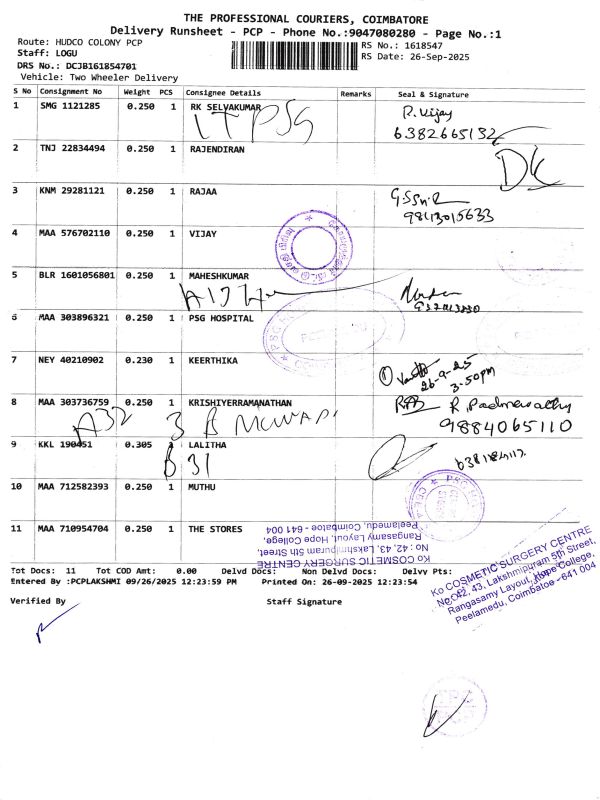 THE PROFESSIONAL COURIERS, COIMBATORE
Delivery Runsheet - PCP - Phone No.:9047080280 - Page No.:1
Route: HUDCO COLONY PCP
Staff: LOGU
DRS No.: DCJB161854701
Vehicle: Two Wheeler Delivery
RS No.: 1618547
RS Date: 26-Sep-2025
S No Consignment No Weight PCS Consignee Details Remarks Seal & Signature
1 SMG 1121285 0.250 1 RK SELVAKUMAR R. Vijay
ITPSG 6382665132
2 TNJ 22834494 0.250 1 RAJENDIRAN
3 KNM 29281121 0.250 1 RAJAA
9843015633
4 MAA 576702110 0.250 1 VIJAY
5 BLR 1601056801 0.250 1 MAHESHKUMAR
6 MAA 303896321 0.250 1 PSG HOSPITAL
7 NEY 40210902 0.230 1 KEERTHIKA
26-9-25
3-50pm
8 MAA 303736759 0.250 1 KRISHIYERRAMANATHAN R. Padmavathy
A32 3 B 9884065110
9 KKL 190451 0.305 1 LALITHA
B 31
10 MAA 712582393 0.250 1 MUTHU
11 MAA 710954704 0.250 1 THE STORES
Ko COSMETIC SURGERY CENTRE
No : 42, 43, Lakshmipuram 5th Street,
Rangasamy Layout, Hope College,
Peelamedu, Coimbatoe - 641 004
Tot Docs: 11 Tot COD Amt: 0.00 Delvd Docs: Non Delvd Docs: Delvy Pts:
Entered By :PCPLAKSHMI 09/26/2025 12:23:59 PM Printed On: 26-09-2025 12:23:54
Ko COSMETIC SURGERY CENTRE
No: 42, 43, Lakshmipuram 5th Street,
Rangasamy Layout, Hope College,
Peelamedu, Coimbatoe - 641 004
Verified By Staff Signature